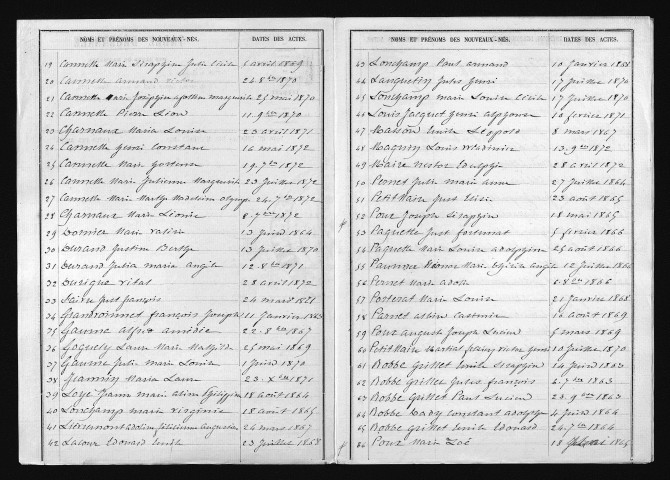 NOMS ET PRÉNOMS DES NOUVEAUX-NÉS. DATES DES ACTES.
19 Cannelle Marie Séraphine Julie 6 avril 1869
20 Cannelle armand 24 8bre 1870
21 Cannelle Marie Joséphine 25 mai 1870
22 Cannelle Pierre Léon 11 9bre 1870
23 Charnaux Maria Louise 23 avril 1871
24 Cannelle henri Constant 16 mai 1872
25 Cannelle Marie hortense 19 7bre 1872
26 Cannelle Marie Julienne Marguerite 23 Juillet 1872
27 Cannelle Marie Marthe Madeleine 24 7bre 1872
28 Charnaux Marie Léonie 8 7bre 1872
29 Dornier Marie 13 Juin 1864
30 Durand Justine Berthe 13 Juillet 1870
31 Durand Julia maria angèle 12 8bre 1871
32 vital 28 avril 1872
33 Just françois 26 mars 1821
34 françois Joseph 11 Janvier 1863
35 Gaume alfred amédée 22 8bre 1867
36 Laure Marie Mathilde 25 mai 1869
37 Gaume Julie marie Louise 1 Juin 1870
38 Jeannin Maria Laure 23 Xbre 1871
39 marie 18 août 1864
40 Lonchamp marie virginie 18 août 1865
41 24 mars 1867
42 Lacour Edouard Emile 23 Juillet 1868
NOMS ET PRÉNOMS DES NOUVEAUX-NÉS. DATES DES ACTES.
43 Lonchamp Paul armand 10 Janvier 1868
44 Languetin Jules henri 17 Juillet 1870
45 Lonchamp marie Louise Cécile 17 Juillet 1870
46 Louis Jacquet henri alphonse 16 février 1871
47 Masson Emile Léopold 8 mars 1867
48 Magnin Louis Wladimir 13 9bre 1872
49 Maire nestor 28 avril 1872
50 Pernet Julie marie anne 27 Juillet 1864
51 Petit Maire Just 23 août 1865
52 Pour Joseph Séraphin 18 mai 1865
53 Paquette Just fortunat 5 février 1866
54 Paquette Marie Louise adolphine 25 août 1866
55 Marie angèle 12 Juillet 1866
56 Pernet Marie 6 8bre 1866
57 Marie Louise 21 Janvier 1868
58 Pernet albin casimir 16 août 1869
59 Pour august Joseph Lucien 5 mars 1869
60 Petit Maire Martial victor henri 10 Juillet 1870
61 Bobbe Grillet Emile Séraphin 14 Juin 1863
62 Bobbe Grillet Jules françois 2 7bre 1863
63 Bobbe Grillet Paul Lucien 23 9bre 1863
64 Bobbe Constant adolphe 4 Juin 1864
65 Bobbe Grillet Emile Edouard 24 7bre 1864
66 Pour Marie Zoé 18 mai 1865